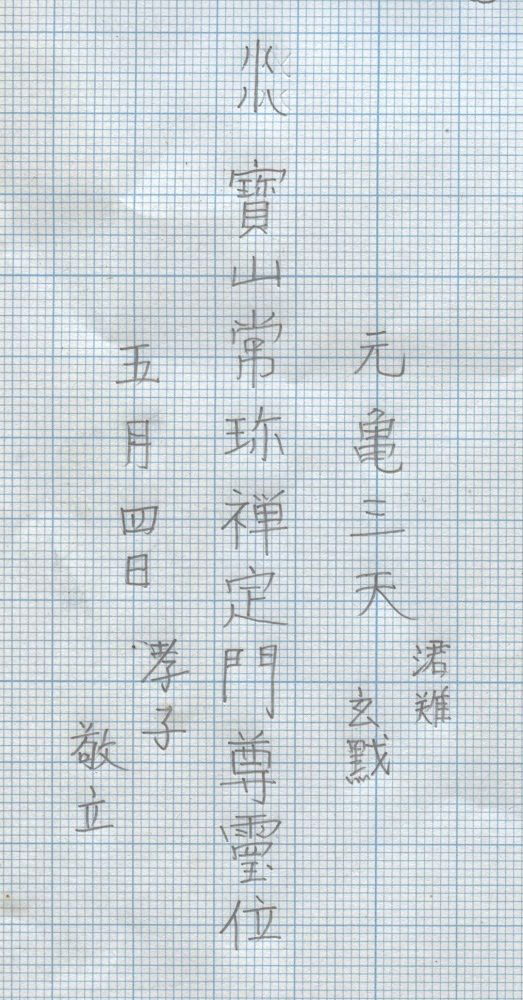 涒難
元亀三天
玄黓
寳山常珎禅定門尊位
五月四日
孝子
敬立